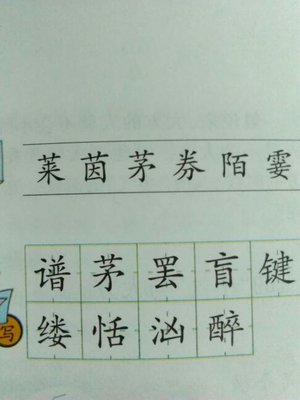 莱茵茅券陌霎
谱茅罢盲键
缕恬汹醉
写